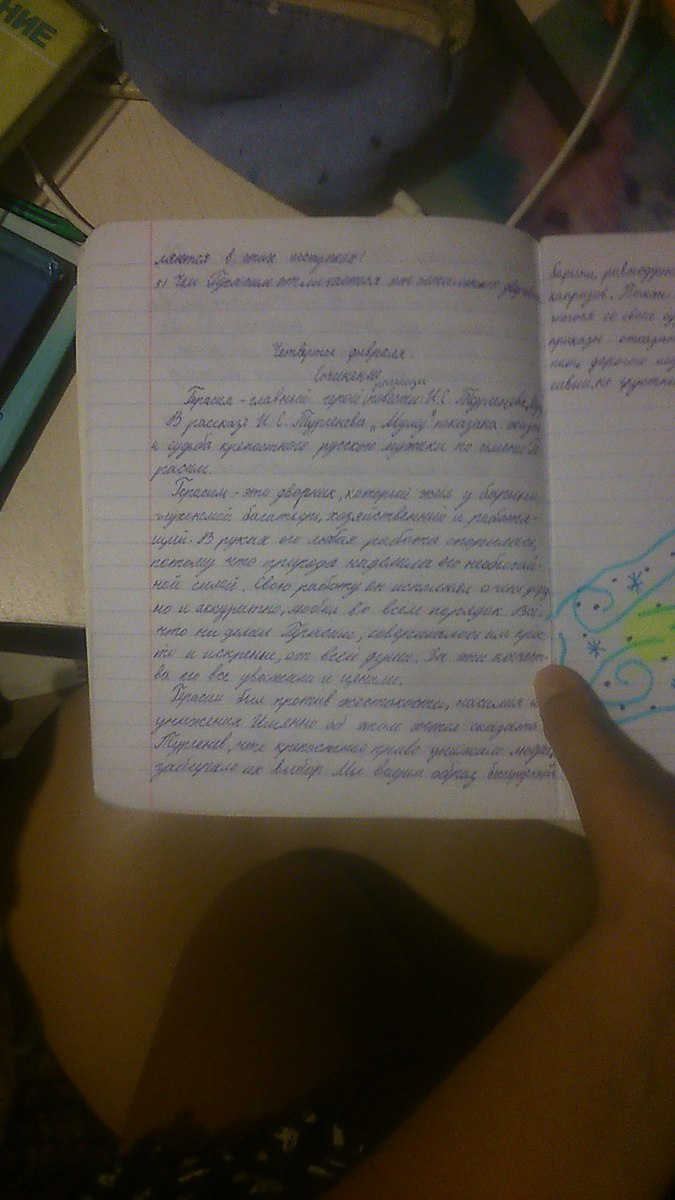 НИЕ
ляются в этих поступках?
5) Чем Герасим отличается от остальных
Четвёртое февраля.
Сочинение
Герасим - главный герой повести И.С. Тургенева
В рассказе И.С. Тургенева „Муму" показана жизнь
и судьба крепостного русского мужика по имени Ге
расим.
Герасим - это дворник, который жил у барыни,
глухонемой богатырь, хозяйственный и работя-
щий. В руках его любая работа спорилась,
потому что природа наделила его необычай-
ной силой. Свою работу он исполнял очень
но и аккуратно, любил во всем порядок. Всё,
что ни делал Герасим, совершалось им
то и искренне, от всей души. За эти качест-
ва его все уважали и ценили.
Герасим был против жестокости, насилия и
унижения. Именно об этом хотел сказать
Тургенев, что крепостное право унижало людей,
забирало их выбор. Мы видим образ
барыни, равнодушн
капризов.
со своей
приказы
дорогое